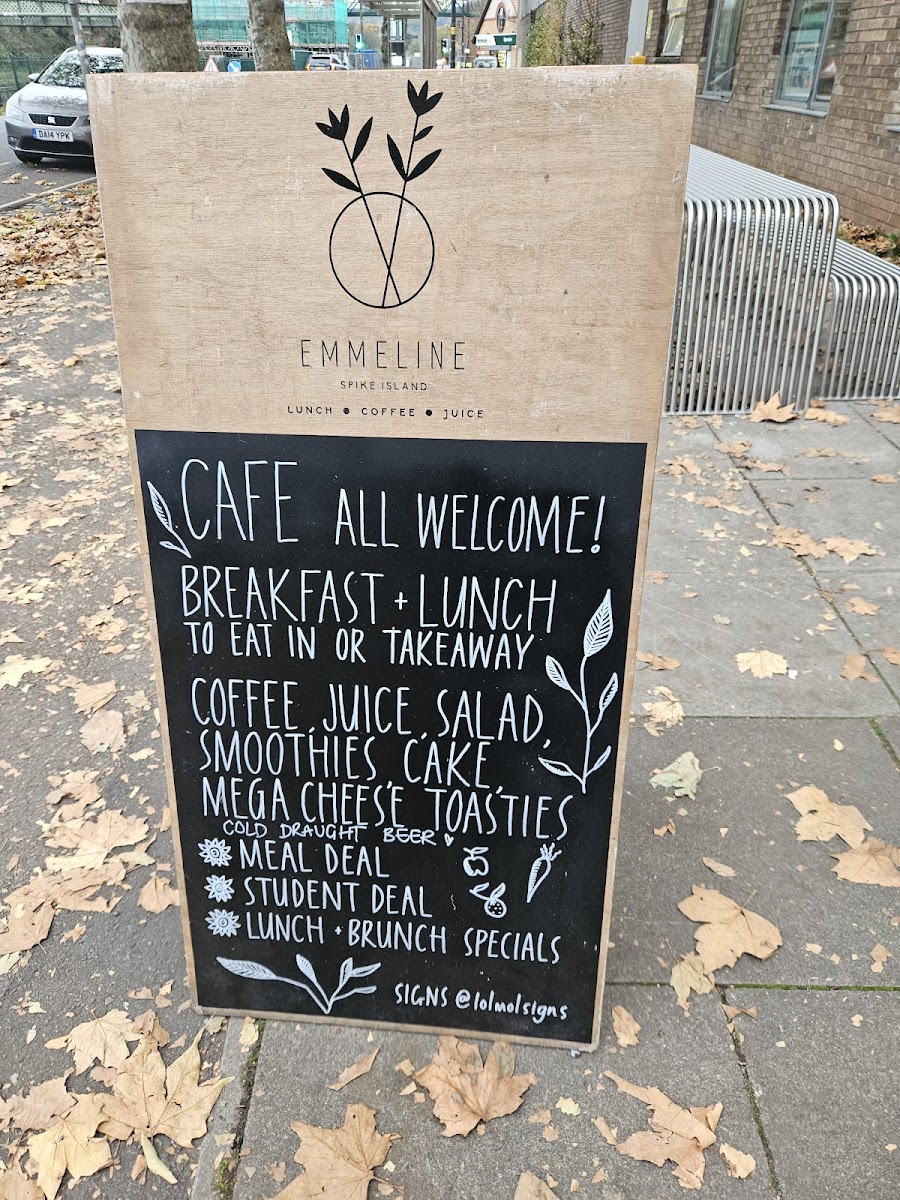 DA14 YPK
EMMELINE
SPIKE ISLAND
LUNCH ● COFFEE ● JUICE
CAFE ALL WELCOME!
BREAKFAST + LUNCH
TO EAT IN OR TAKEAWAY
COFFEE, JUICE, SALAD,
SMOOTHIES, CAKE,
MEGA CHEESE TOASTIES
COLD DRAUGHT BEER
MEAL DEAL
STUDENT DEAL
LUNCH + BRUNCH SPECIALS
SIGNS @lolmolsigns